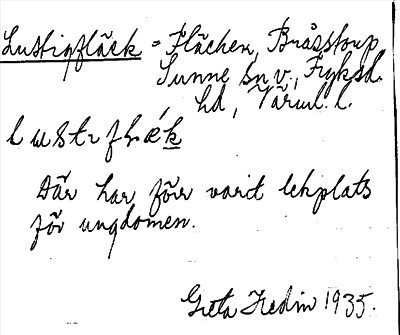 Lustigfläck = Fläcken, Bråsstorp
Sunne sn v., Fryksd.
hd, Värml. l.
Där har förr varit lekplats
för ungdomen.
Greta Hedin 1935.